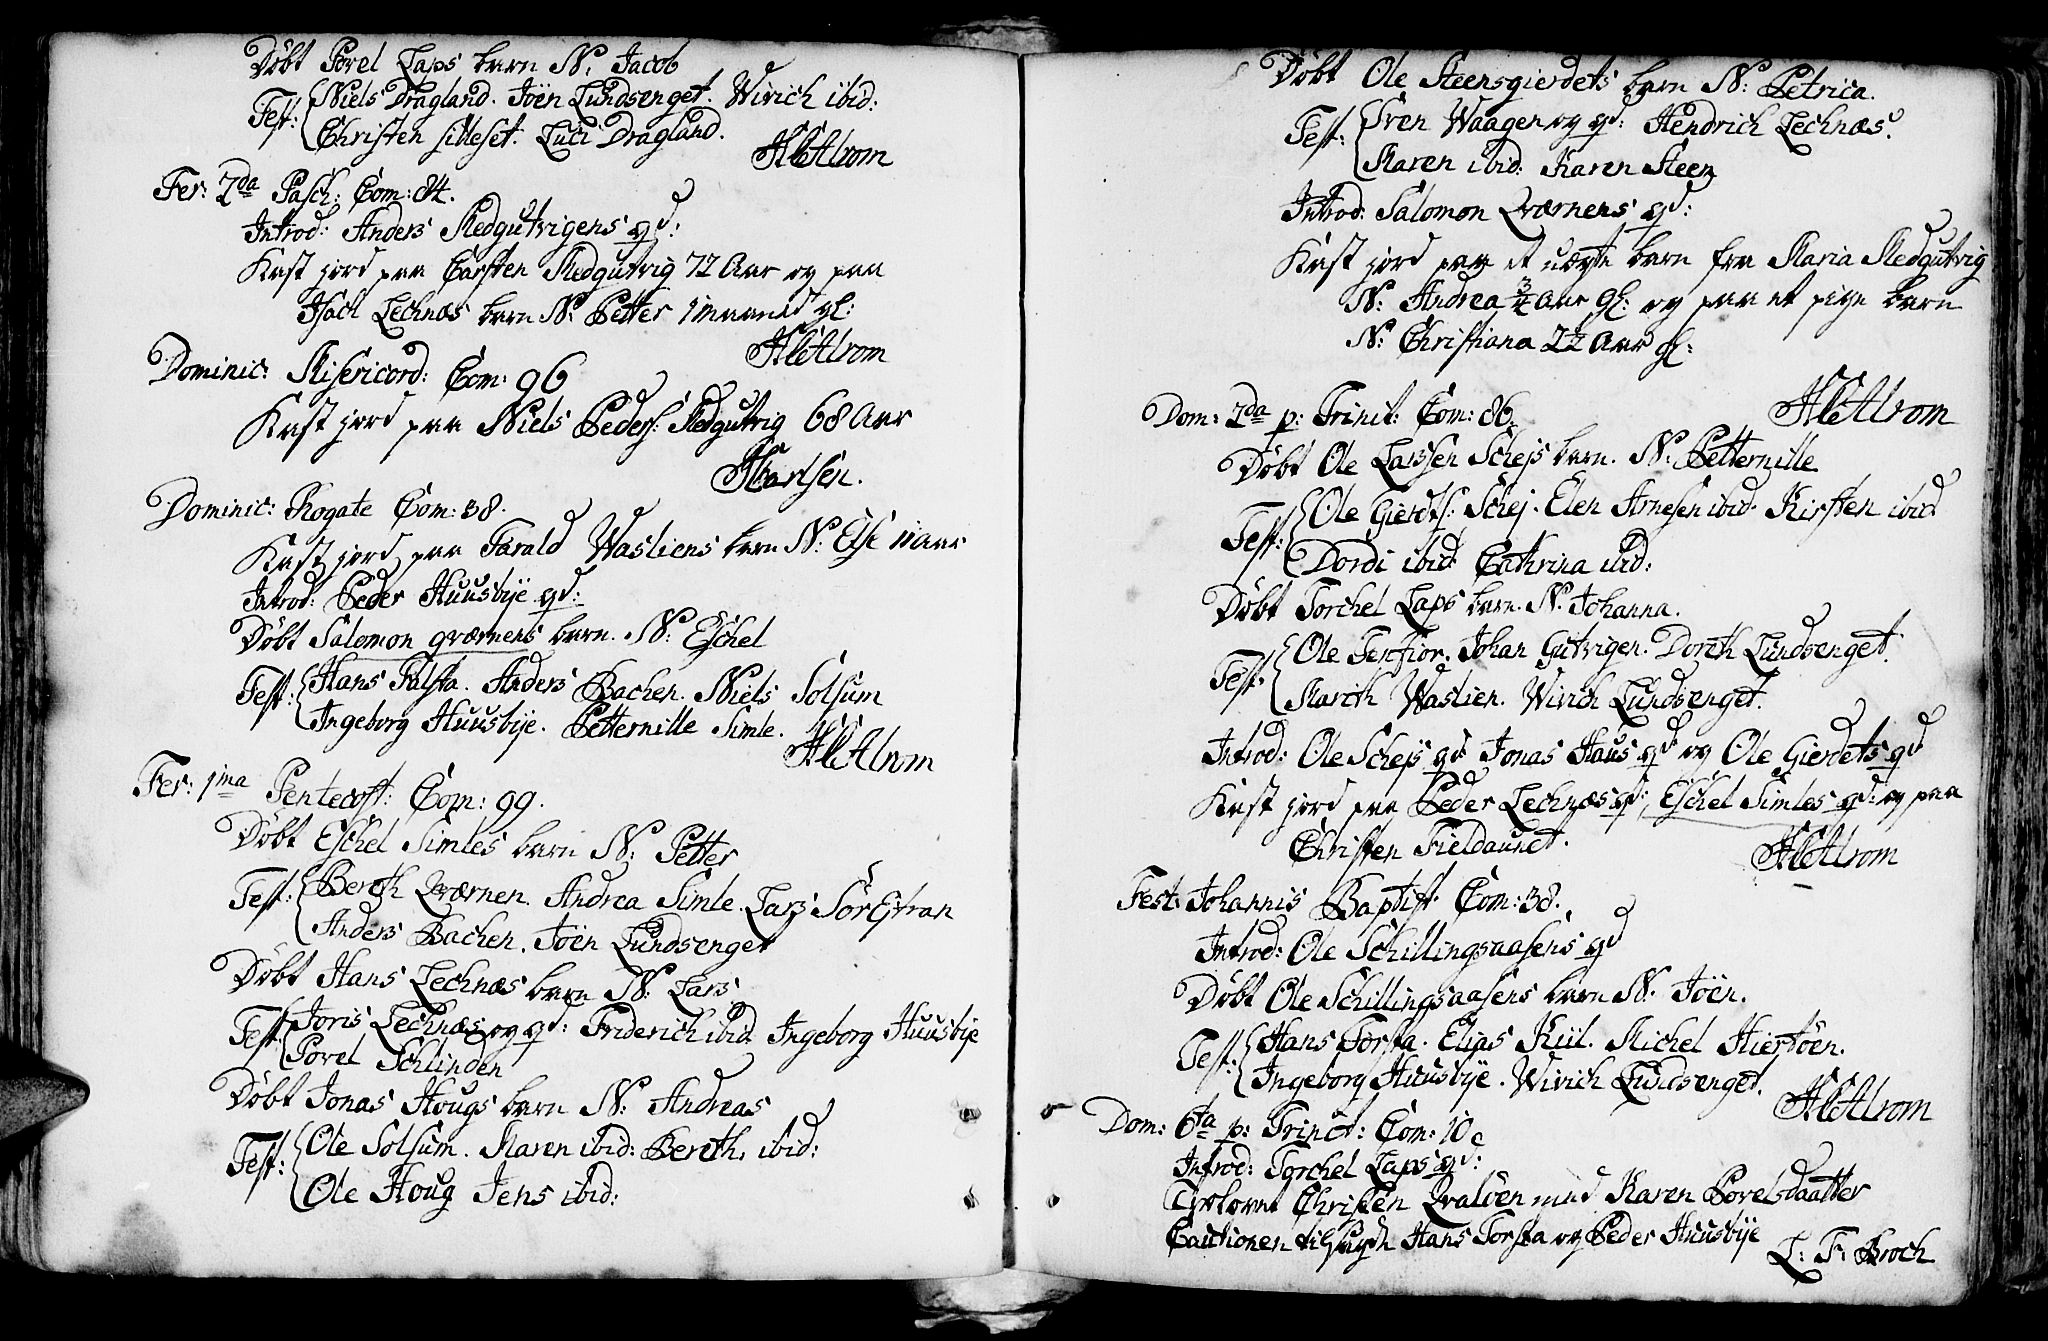 Döbt Povel Laps barn N: Jacob
Test: Niels Dragland. Joën Lundsenget. Wivich ibid:
Christen silleset. Luci Dragland.
Fer: 2da Pasch: Com: 84.
Introd: Anders Nedgutvigens qd:
Kast jord paa Carsten Nedgutvig 72 Aar og paa
Isach Lechnæs barn N: Petter 1 maaned gl:
Dominic: Misericord: Com: 96
Kast jord paa Niels Peders: Nedgutvig 68 Aar
Dominic: Rogate Com: 38.
Kast jord paa Tarald Wasliens barn N: Else 11 Aar
Introd: Peder Huusbÿe qd:
Döbt Salomon qværnens barn. N: Eschel
Test: Hans Falsta. Anders Bachen. Niels Solsum
Ingeborg Huusbÿe. Petternille Simle.
Fer: 1ma Pentecost: Com: 99.
Döbt Eschel Simles barn N: Petter
Test: Bereth Qværnen. Andrea Simle. Lars Sör
Anders Bachen. Joën Lundsenget
Döbt Hans Lechnæs barn N: Lars
Test: Joris Lechnæs og qd: Friderich ibid. Ingeborg Huusbÿe
Povel Schlinden
Döbt Jonas Hougs barn N: Andreas
Test: Ole Solsum. Karen ibid: Bereth ibid:
Ole Houg Jens ibid:
Döbt Ole Steensgierdets barn N: Petrica.
Test: Sven Waagen og qd: Hendrich Lechnæs.
Maren ibid: Karen Steen
Introd: Salomon Qværnens qd:
Kast jord paa et uægte barn fra Maria Nedgutvig
N: Andrea 3/4 Aar gl: og paa et pige barn
N: Christiana 22 Aar gl:
Dom: 2da p: Trinit: Com: 86.
Döbt Ole Larssen Schejs barn. N: Petternille
Test: Ole Schej. Elen Arnesen ibid. Kirsten ibid
Dordi ibid Cathrina ibid:
Döbt Torchel Laps barn. N. Johanna.
Test: Ole Terfior. Johan Gutvigen. Doreth Lundsenget.
Mareth Waslien. Wivich Lundsenget.
Introd: Ole Schejs qd Jonas Haus qd og Ole Gierdets qd
Kast jord paa Peder Lechnæs qd: Eschel Simles qd: og paa
Christen Fieldaunet.
Fest: Johannis Baptist. Com: 38.
Introd: Ole Schillingsaasens qd
Döbt Ole Schillingsaasens barn N. Joën.
Test: Hans Torsta. Elias Kiil. Michel Hiertöen.
Ingeborg Huusbÿe. Wivich Lundsenget.
Dom: 6ta p: Trinit: Com: 10
Introd: Torchel Laps qd:
Trolovet Christen Qvalöen med Karen Povelsdaatter
Cautionen tilsagde Hans Torsta og Peder Huusbÿe
L: F: Broch